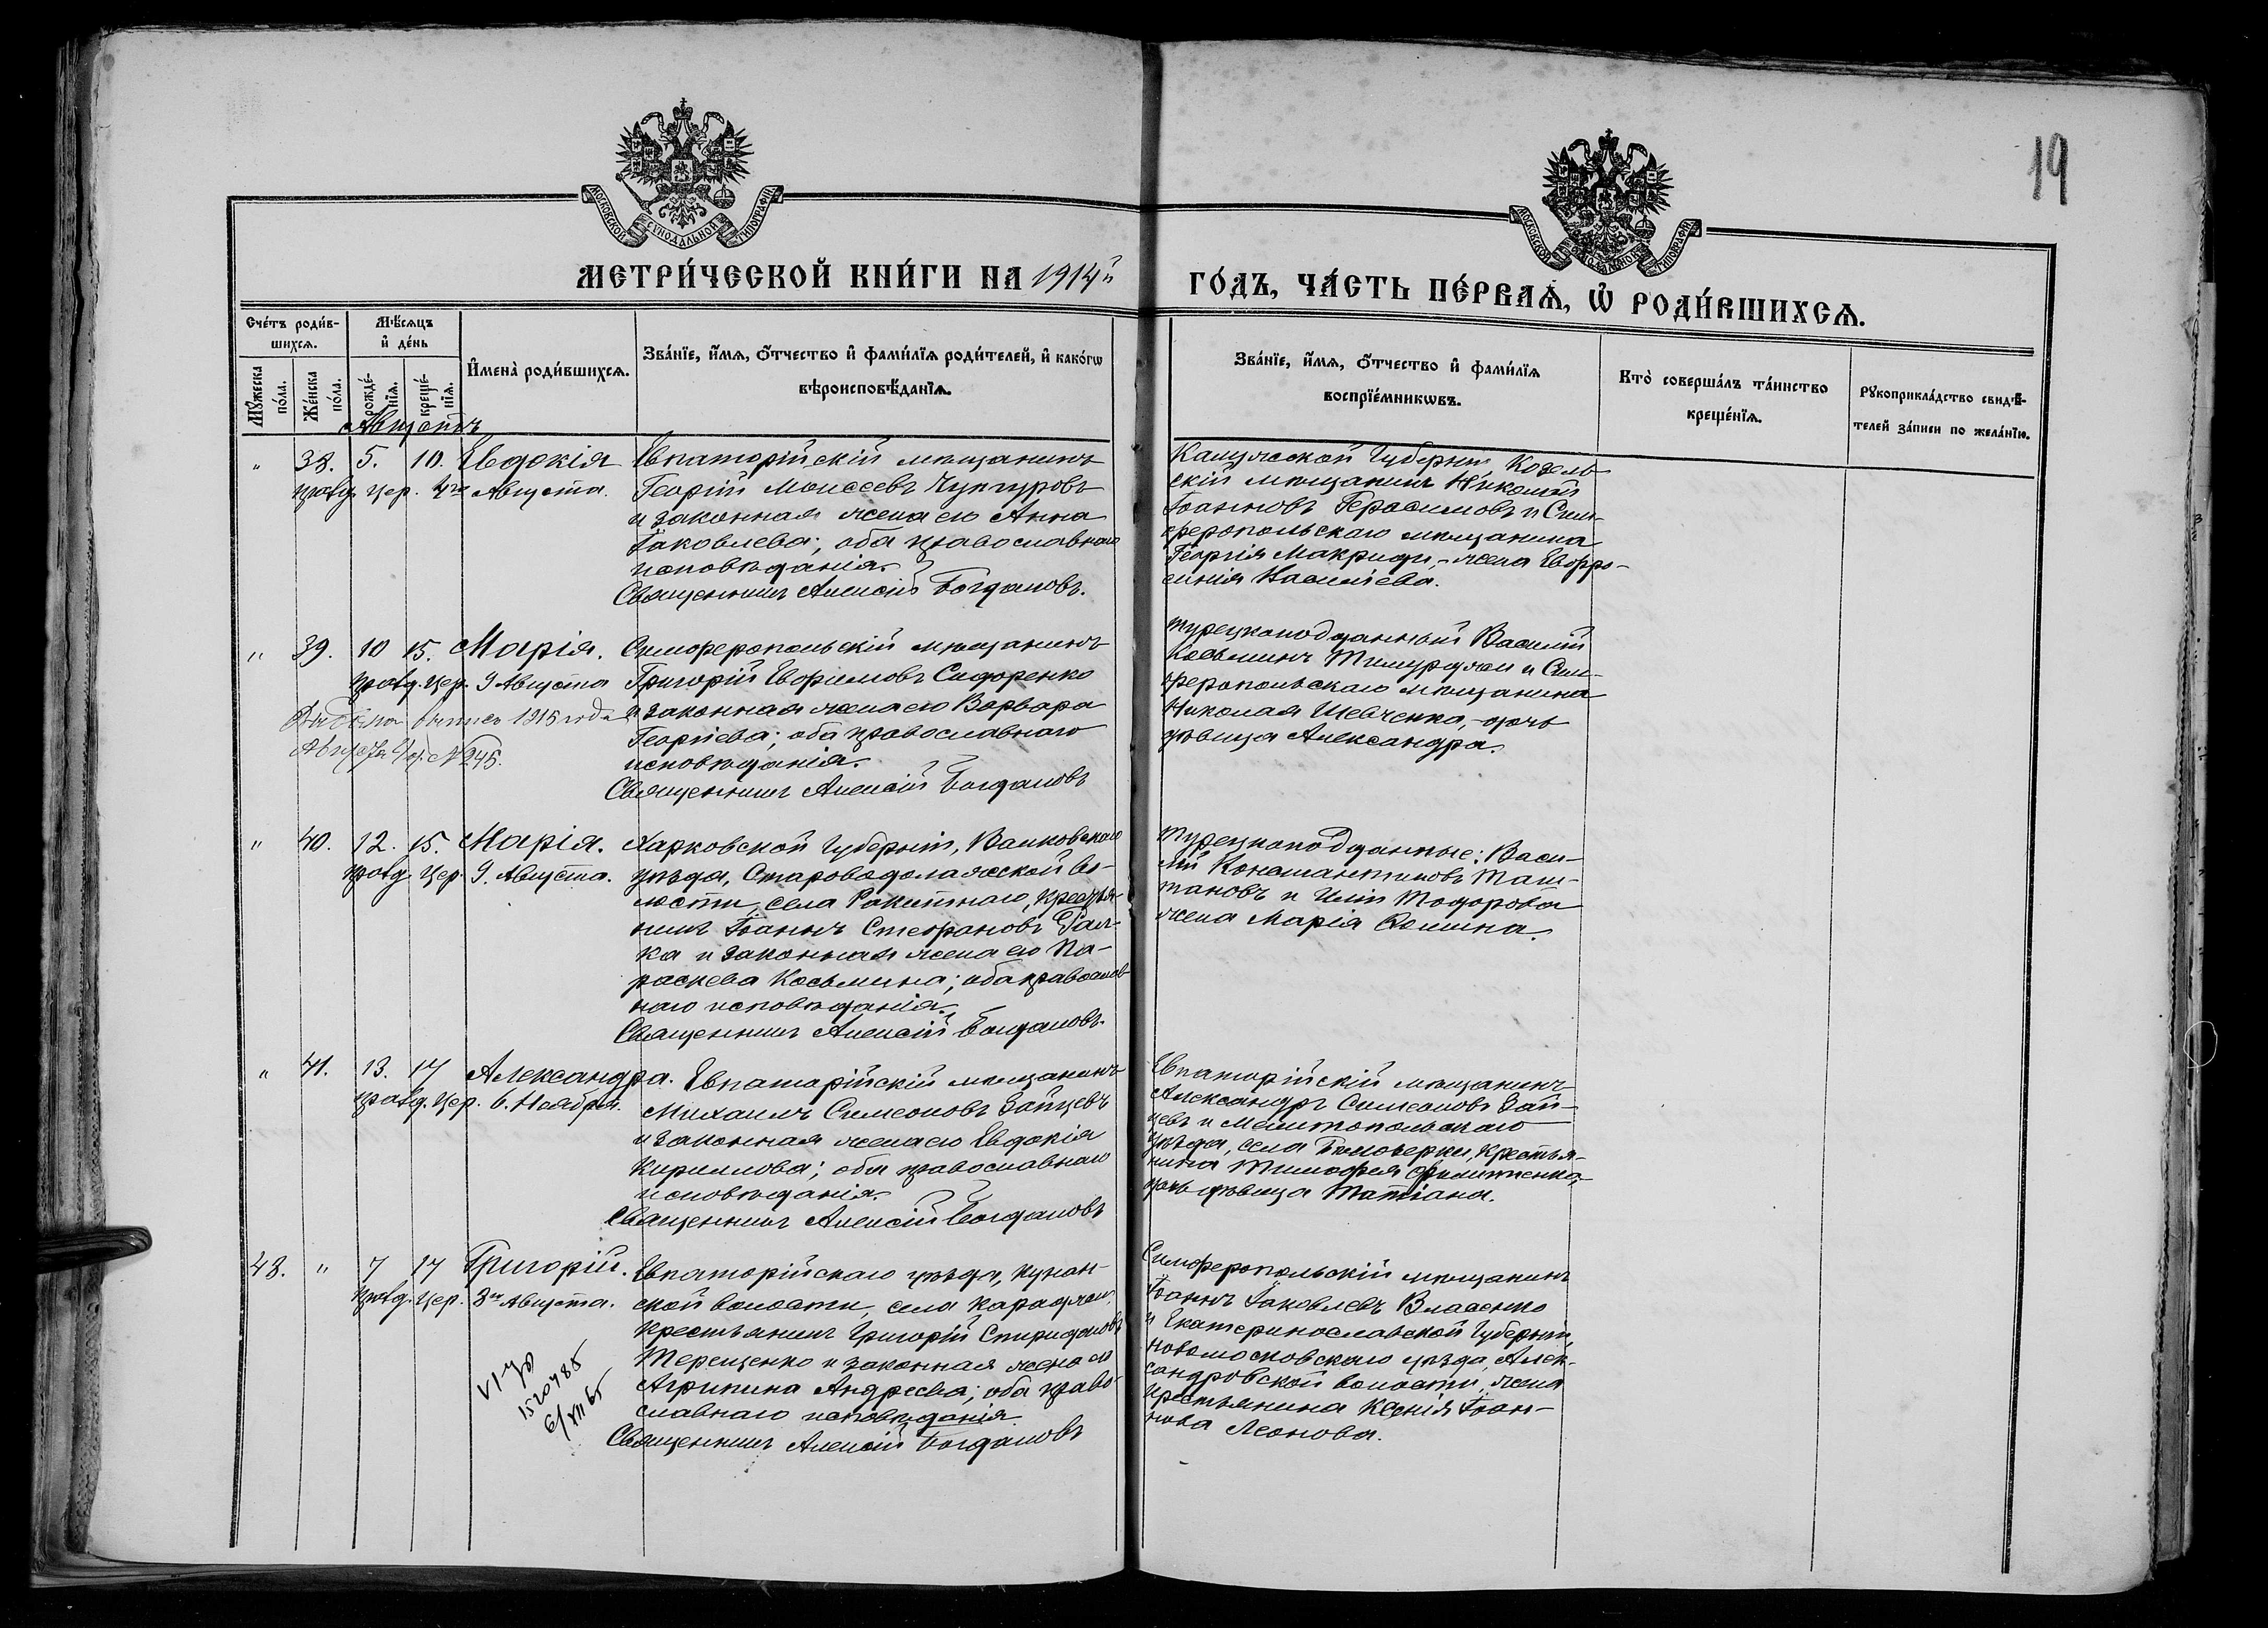 19
МОСКОВСКОЙ СѴНОДАЛЬНОЙ ТИПОГРАФІИ
МОСКОВСКОЙ СѴНОДАЛЬНОЙ ТИПОГРАФІИ
МЕТРИ́ЧЕСКОЙ КНИ́ГИ НА 1914й ГО́ДЪ, ЧА́СТЬ ПЕ́РВАѦ, Ѡ҆ РОДИ́ВШИХСѦ.
Сче́тъ роди́в-
шихсѧ.
Мꙋ́жеска по́ла.
Же́нска по́ла.
Мѣ́сѧцъ
и҆ де́нь
рожде́-
нїѧ.
креще́-
нїѧ.
И҆мена̀ роди́вшихсѧ.
Зва́нїе, и҆́мѧ, ѻ҆́тчество и҆ фами́лїѧ роди́телей, и҆ како́гѡ
вѣроисповѣ́данїѧ.
Зва́нїе, и҆́мѧ, ѻ҆́тчество и҆ фами́лїѧ
воспрїе́мникѡвъ.
Кто̀ соверша́лъ та́инство
креще́нїѧ.
Рꙋкоприкла́дство свидѣ́-
телей за́писи по жела́нїю.
Августъ
" 38. 5. 10. Евдокія
празд. цер. 4го Августа.
Евпаторійскій мѣщанинъ
Георгій Моисеевъ Чунгуровъ
и законная жена его Анна
Іаковлева; оба православнаго
исповѣданія.
Священникъ Алексій Богдановъ.
Калужской Губерніи, Козель-
скій мѣщанинъ Николай
Іоанновъ Герасимовъ и Сим-
феропольскаго мѣщанина
Георгія Макриди, - жена Евфро-
синія Васильева.
" 39. 10 15. Марія.
празд. цер. 9 Августа
1915 года
Августа № 245.
Симферопольскій мѣщанинъ
Григорій Евфимовъ Сидоренко
и законная жена его Варвара
Георгіева; оба православнаго
исповѣданія.
Священникъ Алексій Богдановъ
Турецкоподданный Василій
Косьминъ и Сим-
феропольскаго мѣщанина
Николая Шевченко, - дочь
дѣвица Александра.
" 40. 12. 15. Марія.
празд. цер. 9. Августа.
Харковской Губерніи, Валковскаго
уѣзда, Староводолажской во-
лости, села Ракитнаго, крестья-
нинъ Іоаннъ Стефановъ Гал-
ка и законная жена его Па-
раскева Косьмина; оба православ-
наго исповѣданія.
Священникъ Алексій Богдановъ.
Турецкоподданные: Васи-
лій Константиновъ
и Иліи Тодорова
жена Марія
" 41. 13. 17 Александра.
празд. цер. 6. Ноября.
Евпаторійскій мѣщанинъ
Михаилъ Симеоновъ Зайцевъ
и законная жена его Евдокія
Кириллова; оба православнаго
исповѣданія.
Священникъ Алексій Богдановъ
Евпаторійскій мѣщанинъ
Александръ Симеоновъ Зай-
цевъ и Мелитопольскаго
уѣзда, села Бѣлозерки, крестья-
нина Тимофея Филипенко,
дочь дѣвица Татіана.
48. " 7 17 Григорій.
празд. цер. 8го Августа.
15 20485
6/XII 65
Евпаторійскаго уѣзда, Кунан-
ской волости, села Караджи,
крестьянинъ Григорій Спиридоновъ
Терещенко и законная жена его
Агрипина Андреева; оба право-
славнаго исповѣданія
Священникъ Алексій Богдановъ
Симферопольскій мѣщанинъ
Іоаннъ Іаковлевъ Власенко
и Екатеринославской Губерніи,
Новомосковскаго уѣзда, Алек-
сандровской волости, жена
крестьянина Ксенія Іоан-
нова Леонова.